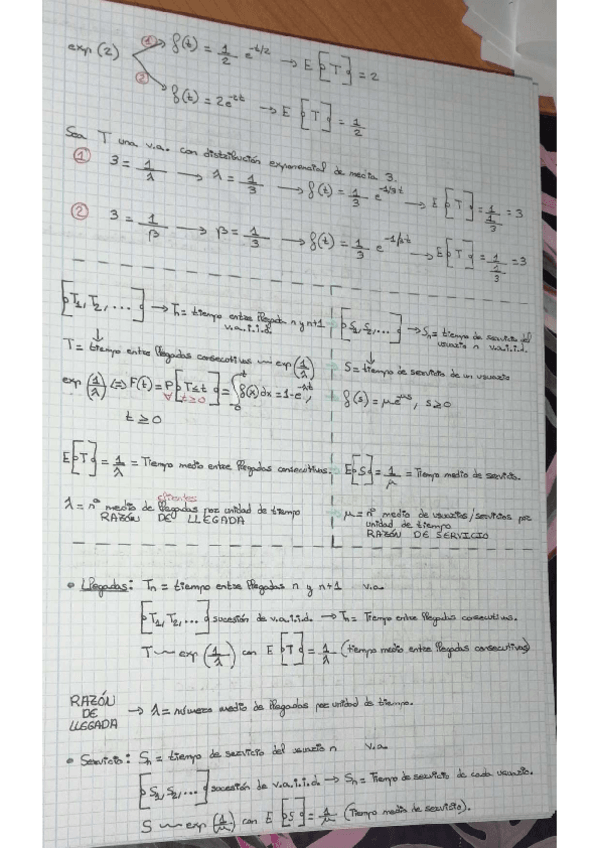 exp (2)
① f(t) = 1/2 e^{-t/2} → E[T] = 2
② f(t) = 2e^{-2t} → E[T] = 1/2
Sea T una v.a. con distribución exponencial de media 3.
① 3 = 1/λ → λ = 1/3 → f(t) = 1/3 e^{-1/3 t} → E[T] = 1/(1/3) = 3
② 3 = 1/β → β = 1/3 → f(t) = 1/3 e^{-1/3 t} → E[T] = 1/(1/3) = 3
[T₁, T₂, ...] → Tₙ = tiempo entre llegada n y n+1
v.a.i.i.d
↓
T = tiempo entre llegadas consecutivas ~ exp(1/λ)
exp(1/λ) ⇔ F(t) = P[T≤t] = ∫₀ᵗ f(x)dx = 1-e^{-λt},
∀ t≥0
t ≥ 0
[S₁, S₂, ...] → Sₙ = tiempo de servicio del
usuario n v.a.i.i.d.
↓
S = tiempo de servicio de un usuario
f(s) = μe^{-μs}, s≥0
E[T] = 1/λ = Tiempo medio entre llegadas consecutivas.
E[S] = 1/μ = Tiempo medio de servicio.
clientes
λ = nº medio de llegadas por unidad de tiempo
RAZÓN DE LLEGADA
μ = nº medio de usuarios/servicios por
unidad de tiempo
RAZÓN DE SERVICIO
• Llegadas: Tₙ = tiempo entre llegadas n y n+1 v.a.
[T₁, T₂, ...] sucesión de v.a.i.i.d. → Tₙ = Tiempo entre llegadas consecutivas.
T ~ exp(1/λ) con E[T] = 1/λ (tiempo medio entre llegadas consecutivas)
RAZÓN
DE
LLEGADA
→ λ = número medio de llegadas por unidad de tiempo.
• Servicio: Sₙ = tiempo de servicio del usuario n v.a.
[S₁, S₂, ...] sucesión de v.a.i.i.d. → Sₙ = Tiempo de servicio de cada usuario.
S ~ exp(1/μ) con E[S] = 1/μ (Tiempo medio de servicio).